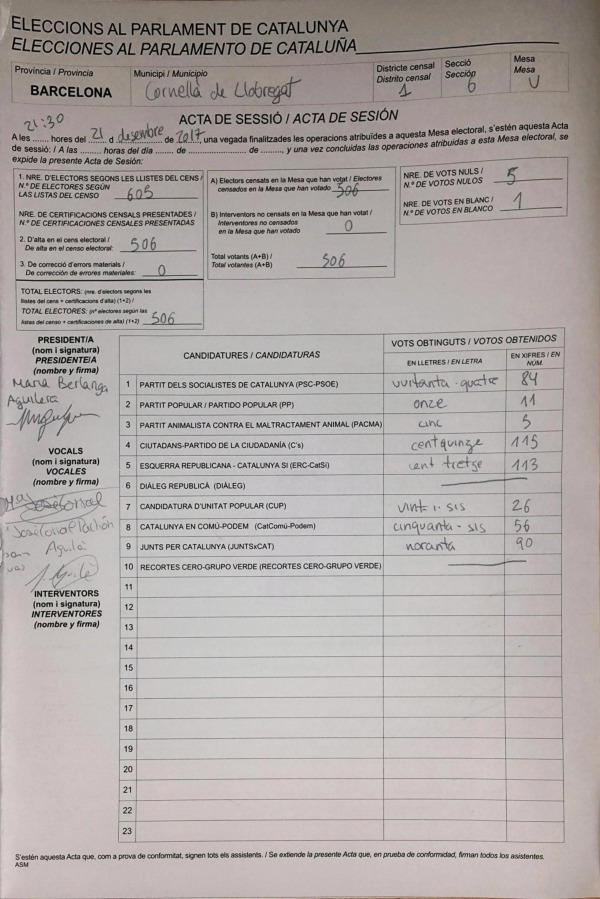 ELECCIONS AL PARLAMENT DE CATALUNYA
ELECCIONES AL PARLAMENTO DE CATALUÑA
Provincia / Provincia
BARCELONA
Municipi / Municipio
Cornellà de Llobregat
Districte censal
Distrito censal
1
Secció
Sección
6
Mesa
Mesa
U
ACTA DE SESSIÓ / ACTA DE SESIÓN
21:30
A les ....... hores del 21 d desembre de 2017, una vegada finalitzades les operacions atribuïdes a aquesta Mesa electoral, s'estén aquesta Acta
de sessió: / A las ......... horas del día ....... de ............ de ........, y una vez concluidas las operaciones atribuidas a esta Mesa electoral, se
expide la presente Acta de Sesión:
1. NRE. D'ELECTORS SEGONS LES LLISTES DEL CENS /
N.º DE ELECTORES SEGÚN
LAS LISTAS DEL CENSO 605
NRE. DE CERTIFICACIONS CENSALS PRESENTADES /
N.º DE CERTIFICACIONES CENSALES PRESENTADAS
2. D'alta en el cens electoral /
De alta en el censo electoral: 506
3. De correcció d'errors materials /
De corrección de errores materiales: 0
TOTAL ELECTORS: (nre. d'electors segons les
llistes del cens + certificacions d'alta) (1+2) /
TOTAL ELECTORES: (nº electores según las
listas del censo + certificaciones de alta) (1+2) 506
A) Electors censats en la Mesa que han votat / Electores
censados en la Mesa que han votado 506
B) Interventors no censats en la Mesa que han votat /
Interventores no censados
en la Mesa que han votado 0
Total votants (A+B) /
Total votantes (A+B) 506
NRE. DE VOTS NULS /
N.º DE VOTOS NULOS 5
NRE. DE VOTS EN BLANC /
N.º DE VOTOS EN BLANCO 1
PRESIDENT/A
(nom i signatura)
PRESIDENTE/A
(nombre y firma)
Maria Berlanga
Aguilera
VOCALS
(nom i signatura)
VOCALES
(nombre y firma)
Aguilà
INTERVENTORS
(nom i signatura)
INTERVENTORES
(nombre y firma)
CANDIDATURES / CANDIDATURAS
VOTS OBTINGUTS / VOTOS OBTENIDOS
EN LLETRES / EN LETRA
EN XIFRES / EN NÚM.
1 PARTIT DELS SOCIALISTES DE CATALUNYA (PSC-PSOE) vuitanta-quatre 84
2 PARTIT POPULAR / PARTIDO POPULAR (PP) onze 11
3 PARTIT ANIMALISTA CONTRA EL MALTRACTAMENT ANIMAL (PACMA) cinc 5
4 CIUTADANS-PARTIDO DE LA CIUDADANÍA (C's) cent quinze 115
5 ESQUERRA REPUBLICANA - CATALUNYA SI (ERC-CatSí) cent tretze 113
6 DIÀLEG REPUBLICÀ (DIÀLEG)
7 CANDIDATURA D'UNITAT POPULAR (CUP) vint-i-sis 26
8 CATALUNYA EN COMÚ-PODEM (CatComú-Podem) cinquanta-sis 56
9 JUNTS PER CATALUNYA (JUNTSxCAT) noranta 90
10 RECORTES CERO-GRUPO VERDE (RECORTES CERO-GRUPO VERDE)
11
12
13
14
15
16
17
18
19
20
21
22
23
S'estén aquesta Acta que, com a prova de conformitat, signen tots els assistents. / Se extiende la presente Acta que, en prueba de conformidad, firman todos los asistentes.
ASM